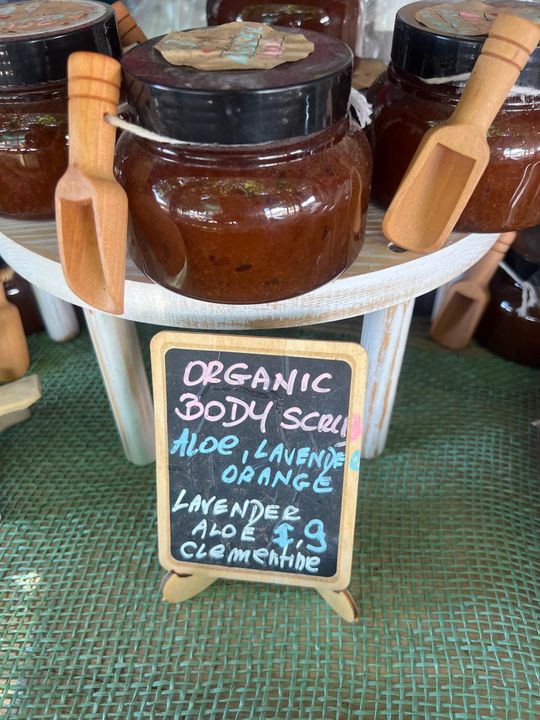 ORGANIC
BODY SCRUB
ALOE, LAVENDE
ORANGE
LAVENDER
ALOE £,9
Clementine